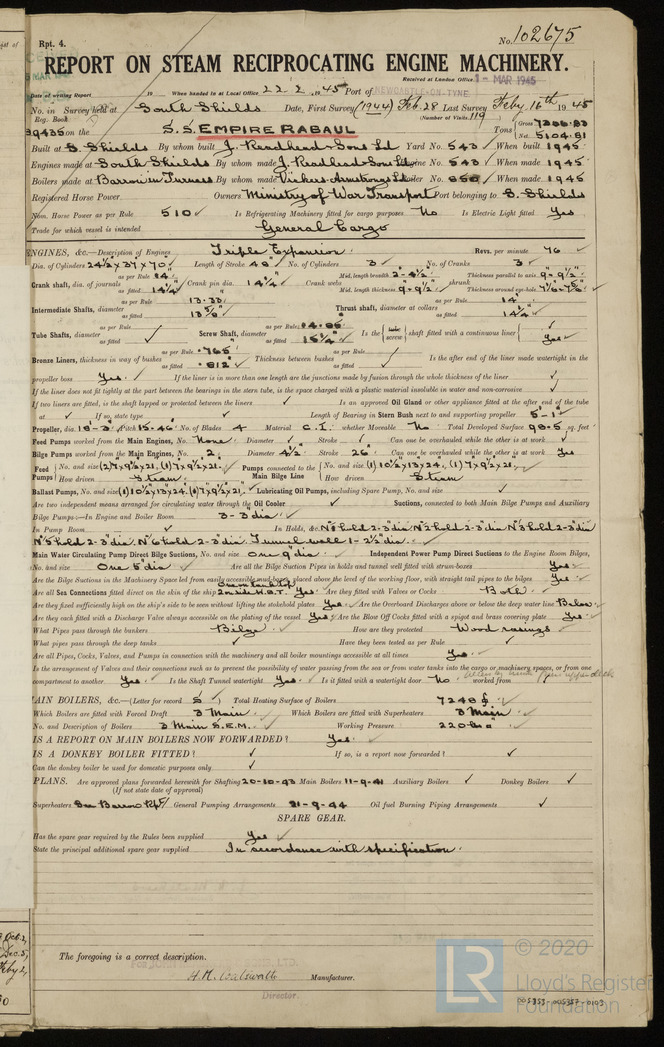 Rpt. 4.
No. 102675
REPORT ON STEAM RECIPROCATING ENGINE MACHINERY.
Received at London Office 1 - MAR 1945
Date of writing Report 19 When handed in at Local Office 22 2 1945 Port of NEWCASTLE-ON-TYNE
No. in Survey held at South Shields Date, First Survey (1944) Feb. 28 Last Survey Feby 16th 1945
Reg. Book (Number of Visits 119)
39435 on the S.S. EMPIRE RABAUL Tons Gross Net 5104.81
Built at S. Shields By whom built J. Readhead & Sons Ltd Yard No. 543 When built 1945
Engines made at South Shields By whom made J. Readhead & Sons Ltd Engine No. 543 When made 1945
Boilers made at Barrow in Furness By whom made Vickers Armstrongs Ltd Boiler No. When made 1945
Registered Horse Power Owners Ministry of War Transport Port belonging to S. Shields
Nom. Horse Power as per Rule 510 Is Refrigerating Machinery fitted for cargo purposes No Is Electric Light fitted Yes
Trade for which vessel is intended General Cargo
ENGINES, &c.—Description of Engines Triple Expansion Revs. per minute 76
Dia. of Cylinders 24½ x 37 x 70 Length of Stroke 48" No. of Cylinders 3 No. of Cranks 3
Crank shaft, dia. of journals as per Rule 14 as fitted 14¼" Crank pin dia. 14¼" Crank webs Mid. length breadth 2'-4½" Mid. length thickness 9"-9½" shrunk Thickness parallel to axis 9"-9½" Thickness around eye-hole
Intermediate Shafts, diameter as per Rule 13.33 as fitted 13⅝" Thrust shaft, diameter at collars as per Rule 14 as fitted 14¼"
Tube Shafts, diameter as per Rule as fitted Screw Shaft, diameter as per Rule as fitted 15¼" Is the tube screw shaft fitted with a continuous liner Yes
Bronze Liners, thickness in way of bushes as per Rule .765" as fitted .812" Thickness between bushes as per Rule as fitted Is the after end of the liner made watertight in the
propeller boss Yes If the liner is in more than one length are the junctions made by fusion through the whole thickness of the liner
If the liner does not fit tightly at the part between the bearings in the stern tube, is the space charged with a plastic material insoluble in water and non-corrosive
If two liners are fitted, is the shaft lapped or protected between the liners Is an approved Oil Gland or other appliance fitted at the after end of the tube
If so, state type Length of Bearing in Stern Bush next to and supporting propeller 5'-1"
Propeller, dia. 18'-3" Pitch 15.46' No. of Blades 4 Material C.I. whether Moveable No Total Developed Surface 98.5 sq. feet
Feed Pumps worked from the Main Engines, No. None Diameter Stroke Can one be overhauled while the other is at work
Bilge Pumps worked from the Main Engines, No. 2 Diameter 4½" Stroke 26" Can one be overhauled while the other is at work Yes
Feed Pumps No. and size (2) 7 x 9½ x 21, (1) 7 x 9½ x 21 How driven Steam Pumps connected to the Main Bilge Line No. and size (1) 10½ x 13 x 24, (1) 7 x 9½ x 21 How driven Steam
Ballast Pumps, No. and size (1) 10½ x 13 x 24, (1) 7 x 9½ x 21 Lubricating Oil Pumps, including Spare Pump, No. and size
Are two independent means arranged for circulating water through the Oil Cooler Suctions, connected to both Main Bilge Pumps and Auxiliary
Bilge Pumps:—In Engine and Boiler Room 3-3" dia
In Pump Room In Holds, &c. No 1 hold 2-3" dia No 2 hold 2-3" dia No 3 hold 2-3" dia
No 5 hold 2-3" dia No 6 hold 2-3" dia Tunnel well 1-2½" dia.
Main Water Circulating Pump Direct Bilge Suctions, No. and size One 9" dia Independent Power Pump Direct Suctions to the Engine Room Bilges,
No. and size One 5" dia Are all the Bilge Suction Pipes in holds and tunnel well fitted with strum-boxes Yes
Are the Bilge Suctions in the Machinery Space led from easily accessible mud-boxes, placed above the level of the working floor, with straight tail pipes to the bilges Yes
Are all Sea Connections fitted direct on the skin of the ship Yes Are they fitted with Valves or Cocks Both
Are they fixed sufficiently high on the ship's side to be seen without lifting the stokehold plates Yes Are the Overboard Discharges above or below the deep water line Below
Are they each fitted with a Discharge Valve always accessible on the plating of the vessel Yes Are the Blow Off Cocks fitted with a spigot and brass covering plate Yes
What Pipes pass through the bunkers Bilge How are they protected Wood casings
What pipes pass through the deep tanks Have they been tested as per Rule
Are all Pipes, Cocks, Valves, and Pumps in connection with the machinery and all boiler mountings accessible at all times Yes
Is the arrangement of Valves and their connections such as to prevent the possibility of water passing from the sea or from water tanks into the cargo or machinery spaces, or from one
compartment to another Yes Is the Shaft Tunnel watertight Yes Is it fitted with a watertight door No worked from
MAIN BOILERS, &c.—(Letter for record S) Total Heating Surface of Boilers 7248
Which Boilers are fitted with Forced Draft 3 Main Which Boilers are fitted with Superheaters 3 Main
No. and Description of Boilers 3 Main S.E.M. Working Pressure 220 lbs
IS A REPORT ON MAIN BOILERS NOW FORWARDED? Yes
IS A DONKEY BOILER FITTED? If so, is a report now forwarded?
Can the donkey boiler be used for domestic purposes only
PLANS. Are approved plans forwarded herewith for Shafting 20-10-43 Main Boilers 11-9-41 Auxiliary Boilers Donkey Boilers
(If not state date of approval)
Superheaters See Barrow Rpt General Pumping Arrangements 21-9-44 Oil fuel Burning Piping Arrangements
SPARE GEAR.
Has the spare gear required by the Rules been supplied Yes
State the principal additional spare gear supplied In accordance with specification
The foregoing is a correct description.
Manufacturer.
Director.
LR © 2020
Lloyd's Register
Foundation
005353-005357-0103